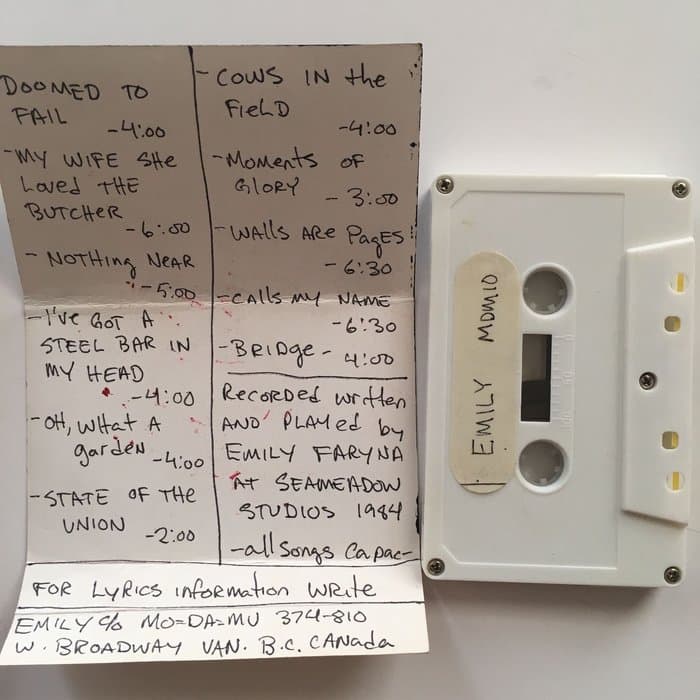 DOOMED TO
FAIL
-4:00
-MY WIFE SHE
LOVED THE
BUTCHER
-6:00
- NOTHING NEAR
-5:00
-I'VE GOT A
STEEL BAR IN
MY HEAD
-4:00
-OH, WHAT A
garden -4:00
-STATE OF THE
UNION
-2:00
- COWS IN the
FIELD
-4:00
-MOMENTS OF
GLORY - 3:00
-WALLS ARE PAGES
- 6:30
-CALLS MY NAME
-6:30
-BRIDGE- 4:00
RECORDED WRITTEN
AND PLAYED by
EMILY FARYNA
AT SEAMEADOW
STUDIOS 1984
-all songs Capac-
FOR LYRICS information WRITE
EMILY c/o MO=DA=MU 374-810
W. BROADWAY VAN. B.C. CANADA
EMILY